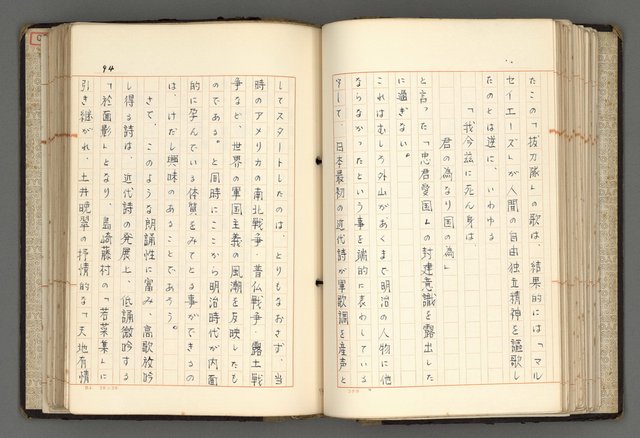 たこの「抜刀隊」の歌は、結果的には「マル
セイエーズ」が人間の自由独立精神を謳歌し
たのとは逆に、いわゆる
「我今茲に死ん身は
君の為なり国の為」
と言った「忠君愛国」の封建意識を露出した
に過ぎない。
これはむしろ外山があくまで明治の人物に他
ならなかったという事を端的に表わしている
そして、日本最初の近代詩が軍歌調を産声と
94
してスタートしたのは、とりもなおさず、当
時のアメリカの南北戦争・普仏戦争・露土戦
争など、世界の軍国主義の風潮を反映したも
のである。と同時にここから明治時代が内面
的に孕んでいる体質をみてとる事ができるの
は、けだし興味のあることであろう。
さて、このような朗誦性に富み、高歌放吟
し得る詩は、近代詩の発展上、低誦微吟する
「於面影」となり、島崎藤村の「若菜集」に
引き継がれ、土井晩翠の抒情的な「天地有情